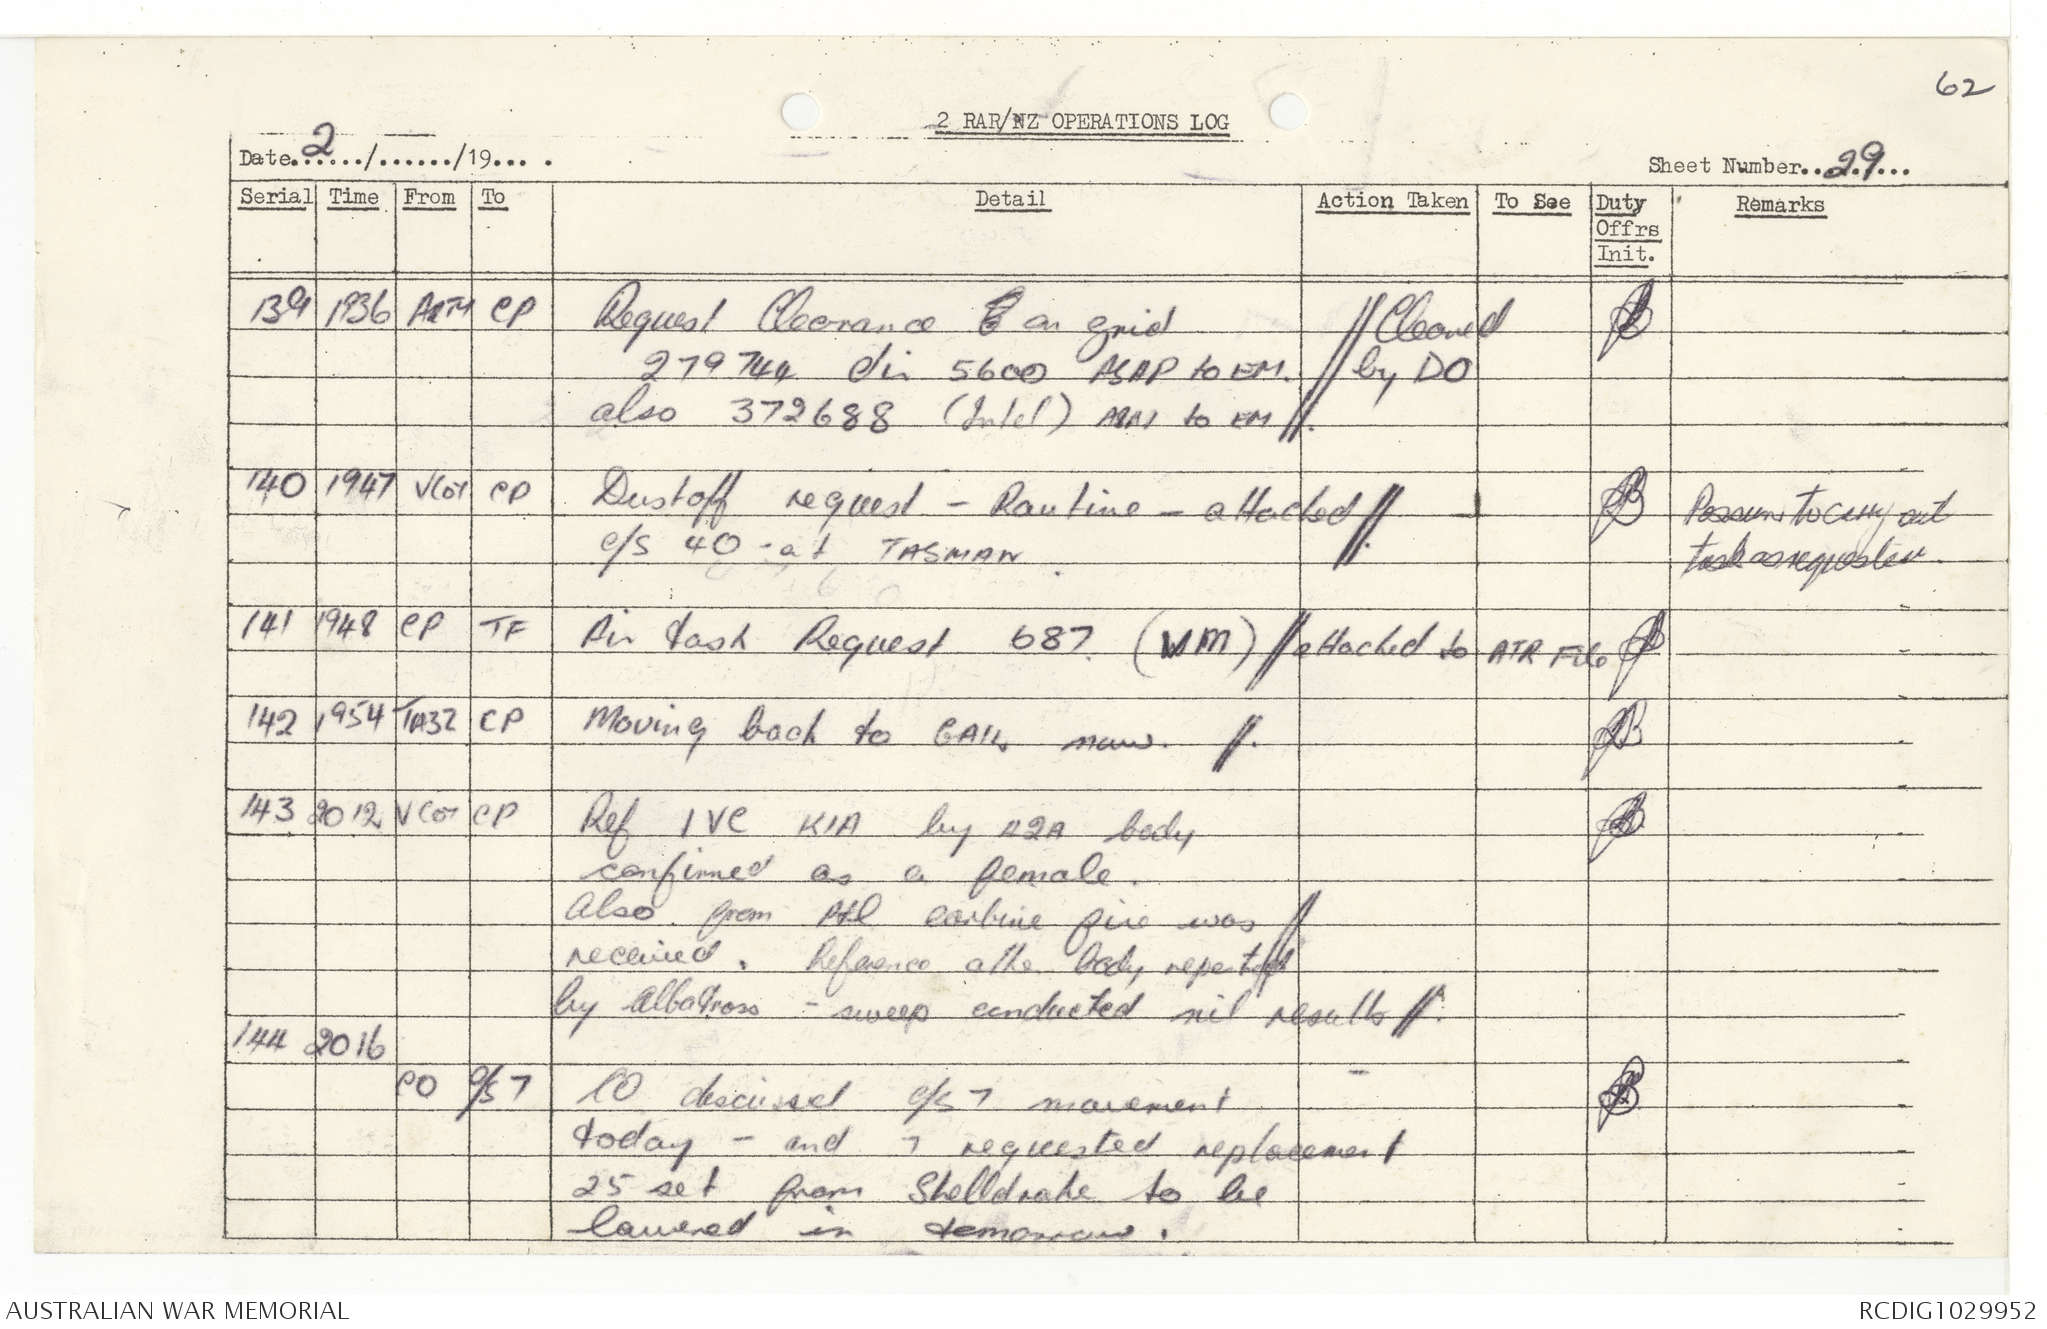 62
2 RAR/NZ OPERATIONS LOG
Date..2..../....../19... .
Sheet Number..29...
Serial Time From To Detail Action Taken To See Duty Offrs Init. Remarks
139 1936 ARTY CP Request Clearance on grid // Cleared
279744 dir 5600 ASAP to EM. // by DO
also 372688 (Intel) to EM //.
140 1947 VCOT CP Dustoff request - Routine - attached // Possum to carry out
c/s 40 - at TASMAN. task as requested.
141 1948 CP TF Air task Request 687. (MM) // attached to ATR File
142 1954 TA32 CP Moving back to GAIL now. //.
143 2012 VCOT CP Ref 1 VC KIA by body
confirmed as a female.
Also from carbine fire was
received. Reference other body reported
by Albatross - sweep conducted nil results //.
144 2016
CO c/s 7 CO discussed c/s 7 movement
today - and 7 requested replacement
25 set from Shelldrake to be
lowered in tomorrow.
AUSTRALIAN WAR MEMORIAL
RCDIG1029952